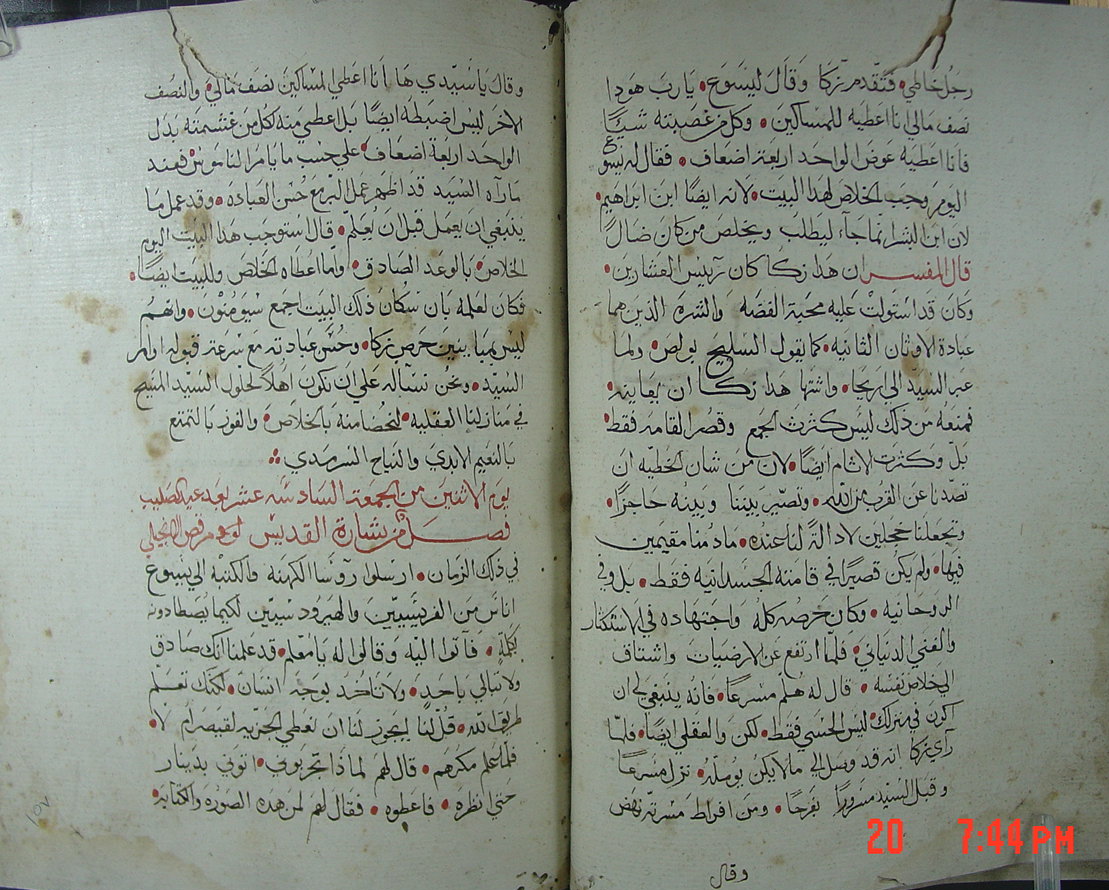 رجل خاطي • فتقدم زكا وقال ليسوع • يا رب هوذا
نصف مالي انا اعطيه للمساكين • وكل من غصبته شيئًا
فانا اعطيه عوض الواحد اربعة اضعاف • فقال له يسوع
اليوم وجب الخلاص لهذا البيت • لانه ايضًا ابن ابراهيم •
لان ابن البشر انما جآء ليطلب ويخلص من كان ضالًا
قال المفسر ان هذا زكا كان رئيس العشارين •
وكان قد استولت عليه محبة الفضه والشره الذين هما
عبادة الاوثان الثانيه • كما يقول السليح بولص • ولما
عبر السيد الي اريحا • واشتها هذا زكا ان يعاينه •
فمنعه من ذلك ليس كثرت الجمع وقصر القامه فقط •
بل وكثرت الاثام ايضًا • لان من شان الخطيه ان
تصدنا عن القرب من الله • وتصير بيننا وبينه حاجزًا •
وتجعلنا خجلين لا دالة لنا عنده • ما دمنا مقيمين
فيها • ولم يكن قصيرًا في قامته الجسدانيه فقط • بل وفي
الروحانيه • وكان حرصه كله واجتهاده في الاستكثار
والغني الدنياني • فلما ارتفع عن الارضيات واشتاف
الي خلاص نفسه • قال له هلم مسرعًا • فانه ينبغي لي ان
اكون في منزلك • ليس الحسي فقط • لكن والعقلي ايضًا • فلما
رآي زكا انه قد وصل الي ما لا يكن يوصله • نزل مسرعًا
وقبل السيد مسرورًا بفرحًا • ومن افراط مسرته نهض
وقال
وقال يا سيدي ها انا اعطي المساكين نصف مالي • والنصف
الاخر ليس اضبطه ايضًا بل اعطي منه لكل من غشمته بدل
الواحد اربعة اضعاف • علي حسب ما يامر الناموس • فعند
ما رآه السيد قد اظهر عمل البر مع حسن العباده • وقد عمل ما
ينبغي ان يعمل قبل ان يعلم • قال استوجب هذا البيت اليوم
الخلاص • بالوعد الصادق • ولما اعطاه الخلاص وللبيت ايضًا •
فكان لعلمه بان سكان ذلك البيت اجمع سيومنون • وانهم
ليس حرص زكا • وحسن عبادته مع سرعة قبوله اوامر
السيد • ونحن نسآله علي ان نكون اهلًا لحلول السيد المسيح
في منازلنا العقليه • لتحضنا منه بالخلاص • والفوز بالتمتع
بالنعيم الابدي والنياح السرمدي ••
يوم الاثنين من الجمعة السادسه عشر بعد عيد الصليب
فصل من بشارة القديس مرقص الانجيلي
في ذلك الزمان • ارسلوا روسا الكهنه والكتبه الي يسوع
اناس من الفريسيين والهيرودسيين لكيما يصطادونه
بكلمة • فآتوا اليه وقالوا له يا معلم • قد علمنا انك صادق
ولا تبالي باحد • ولا تاخذ بوجه انسان • لكنك تعلم
طريق الله • قل لنا ايجوز لنا ان نعطي الجزيه لقيصر ام لا •
فلما علم مكرهم • قال لهم لماذا تجربوني • اتوني بدينار
حتي انظره • فاعطوه • فقال لهم لمن هذه الصوره والكتابه •
١٥٧
20 7:44 PM